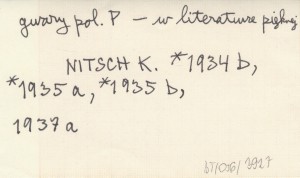 gwary pol. P – w literaturze pięknej
NITSCH K. *1934 b,
*1935 a, *1935 b,
1937 a